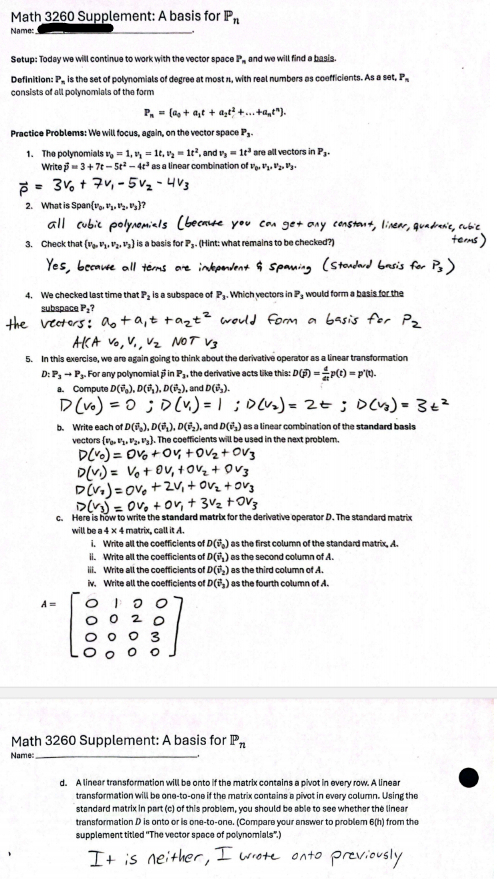 Math 3260 Supplement: A basis for ℙₙ
Name:
Setup: Today we will continue to work with the vector space ℙₙ and we will find a basis.
Definition: ℙₙ is the set of polynomials of degree at most n, with real numbers as coefficients. As a set, ℙₙ
consists of all polynomials of the form
ℙₙ = {a₀ + a₁t + a₂t² + ...+aₙtⁿ}.
Practice Problems: We will focus, again, on the vector space ℙ₃.
1. The polynomials v₀ = 1, v₁ = 1t, v₂ = 1t², and v₃ = 1t³ are all vectors in ℙ₃.
Write p⃗ = 3 + 7t − 5t² − 4t³ as a linear combination of v₀, v₁, v₂, v₃.
p⃗ = 3v₀ + 7v₁ - 5v₂ - 4v₃
2. What is Span{v₀, v₁, v₂, v₃}?
all cubic polynomials (because you can get any constant, linear, quadratic, cubic
terms)
3. Check that {v₀, v₁, v₂, v₃} is a basis for ℙ₃. (Hint: what remains to be checked?)
Yes, because all terms are independent & spanning (Standard basis for P₃)
4. We checked last time that ℙ₂ is a subspace of ℙ₃. Which vectors in ℙ₃ would form a basis for the
subspace ℙ₂?
the vectors: a₀ + a₁t + a₂t² would form a basis for P₂
AKA v₀, v₁, v₂ NOT v₃
5. In this exercise, we are again going to think about the derivative operator as a linear transformation
D: ℙ₃ → ℙ₃. For any polynomial p⃗ in ℙ₃, the derivative acts like this: D(p⃗) = d/dt p(t) = p'(t).
a. Compute D(v⃗₀), D(v⃗₁), D(v⃗₂), and D(v⃗₃).
D(v₀) = 0 ; D(v₁) = 1 ; D(v₂) = 2t ; D(v₃) = 3t²
b. Write each of D(v⃗₀), D(v⃗₁), D(v⃗₂), and D(v⃗₃) as a linear combination of the standard basis
vectors {v₀, v₁, v₂, v₃}. The coefficients will be used in the next problem.
D(v₀) = 0v₀ + 0v₁ + 0v₂ + 0v₃
D(v₁) = v₀ + 0v₁ + 0v₂ + 0v₃
D(v₂) = 0v₀ + 2v₁ + 0v₂ + 0v₃
D(v₃) = 0v₀ + 0v₁ + 3v₂ + 0v₃
c. Here is how to write the standard matrix for the derivative operator D. The standard matrix
will be a 4 × 4 matrix, call it A.
i. Write all the coefficients of D(v⃗₀) as the first column of the standard matrix, A.
ii. Write all the coefficients of D(v⃗₁) as the second column of A.
iii. Write all the coefficients of D(v⃗₂) as the third column of A.
iv. Write all the coefficients of D(v⃗₃) as the fourth column of A.
A =
0 1 0 0
0 0 2 0
0 0 0 3
0 0 0 0
Math 3260 Supplement: A basis for ℙₙ
Name:
d. A linear transformation will be onto if the matrix contains a pivot in every row. A linear
transformation will be one-to-one if the matrix contains a pivot in every column. Using the
standard matrix in part (c) of this problem, you should be able to see whether the linear
transformation D is onto or is one-to-one. (Compare your answer to problem 6(h) from the
supplement titled "The vector space of polynomials".)
It is neither, I wrote onto previously